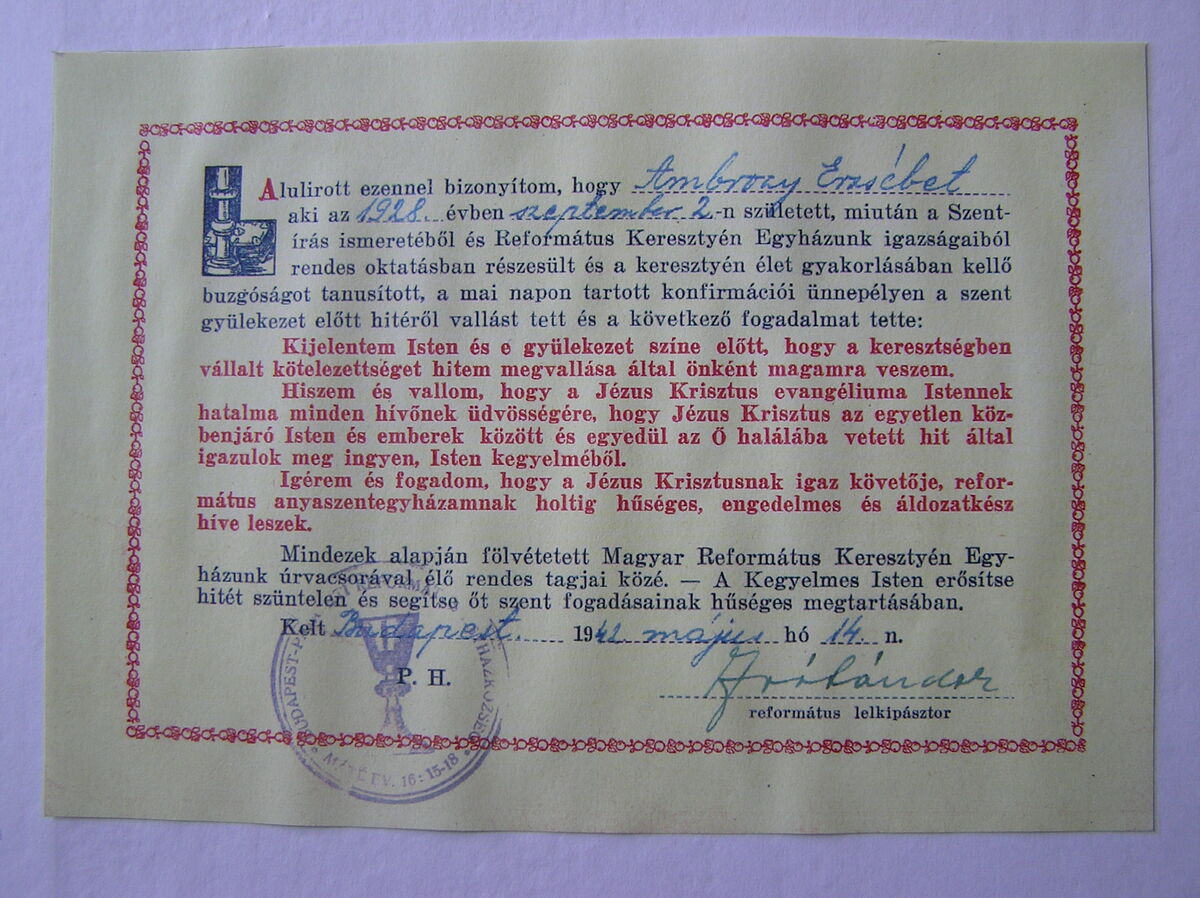 Alulirott ezennel bizonyítom, hogy Ambrozy Erzsébet
aki az 1928. évben szeptember 2.-n született, miután a Szent-
írás ismeretéből és Református Keresztyén Egyházunk igazságaiból
rendes oktatásban részesült és a keresztyén élet gyakorlásában kellő
buzgóságot tanusított, a mai napon tartott konfirmációi ünnepélyen a szent
gyülekezet előtt hitéről vallást tett és a következő fogadalmat tette:
Kijelentem Isten és e gyülekezet színe előtt, hogy a keresztségben
vállalt kötelezettséget hitem megvallása által önként magamra veszem.
Hiszem és vallom, hogy a Jézus Krisztus evangéliuma Istennek
hatalma minden hívőnek üdvösségére, hogy Jézus Krisztus az egyetlen köz-
benjáró Isten és emberek között és egyedül az Ő halálába vetett hit által
igazulok meg ingyen, Isten kegyelméből.
Igérem és fogadom, hogy a Jézus Krisztusnak igaz követője, refor-
mátus anyaszentegyházamnak holtig hűséges, engedelmes és áldozatkész
híve leszek.
Mindezek alapján fölvétetett Magyar Református Keresztyén Egy-
házunk úrvacsorával élő rendes tagjai közé. — A Kegyelmes Isten erősítse
hitét szüntelen és segítse őt szent fogadásainak hűséges megtartásában.
Kelt Budapest. 1942 május hó 14. n.
P. H.
református lelkipásztor
BUDAPEST- REFORMÁ EGYHÁZKÖZSÉG
MÁTÉ EV. 16: 15-18